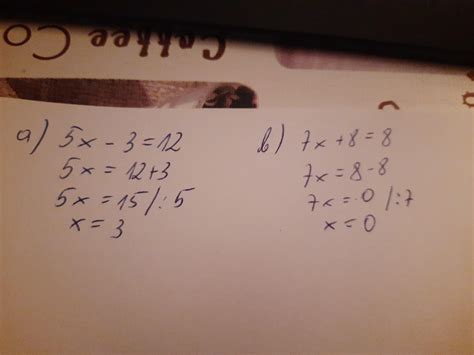 Coffee Co
a) 5x - 3 = 12
5x = 12+3
5x = 15 /: 5
x = 3
b) 7x + 8 = 8
7x = 8-8
7x = 0 /: 7
x = 0